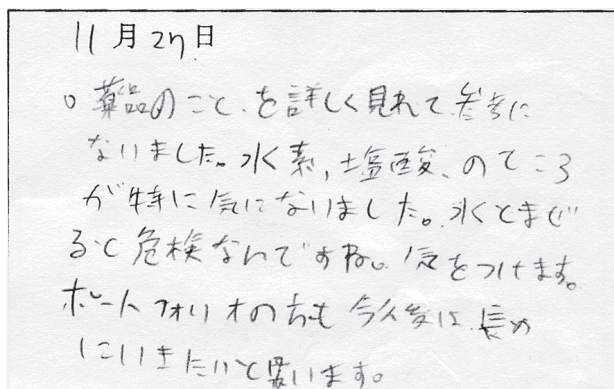 11月27日
○薬品のこと、を詳しく見れて、参考に
なりました。水素,塩酸、のところ
が特に気になりました。水とまぜ
ると危検なんですね。気をつけます。
ポートフォリオの方も今後は、長め
にいきたいと思います。